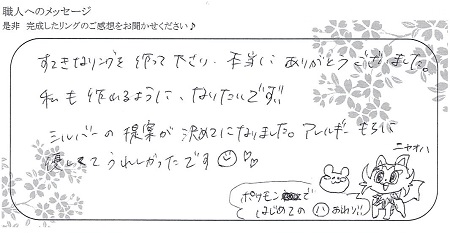 職人へのメッセージ
是非 完成したリングのご感想をお聞かせください♪
すてきなリングを作って下さり、本当に ありがとうございました。
私も作れるように、なりたいです!!
シルバーの提案が決めてになりました。アレルギーもちに
優しくてうれしかったです
ニャオハ
ポケモンで
はじめてのハおわり!!